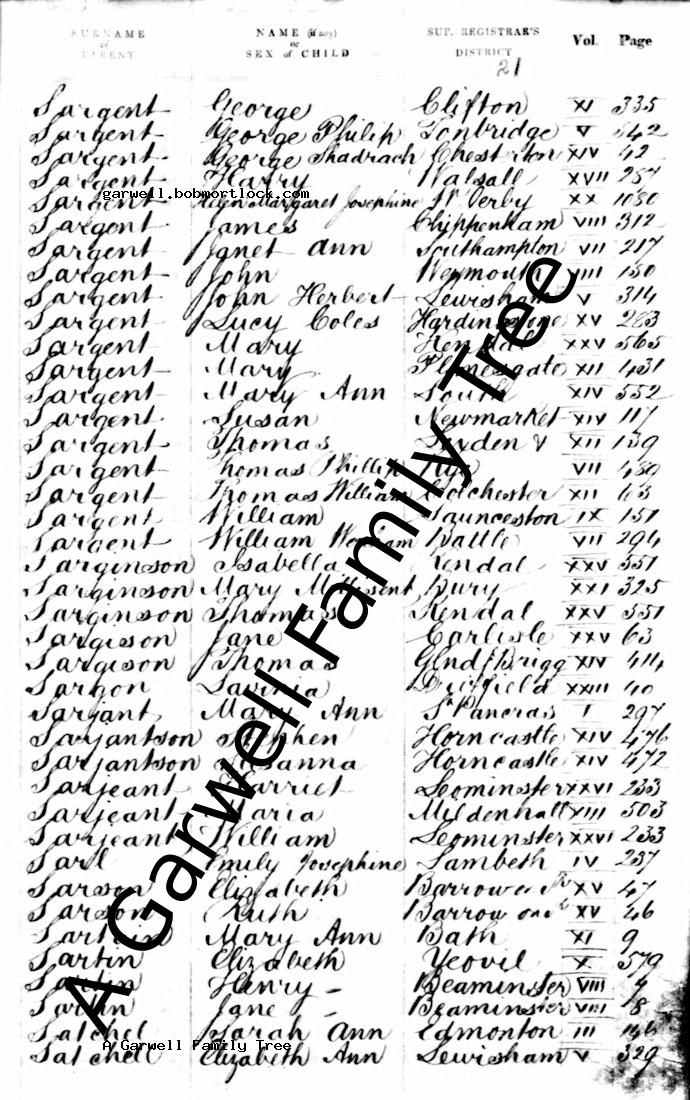 SURNAME of PARENT NAME (if any) or SEX of CHILD SUP. REGISTRAR'S DISTRICT Vol. Page
21
Sargent George Clifton XI 335
Sargent George Philip Tonbridge V 342
Sargent George Shadrach Chesterton XIV 42
Sargent Harry Walsall XVII 257
garwell.bobmortlock.com/
Sargent Helen Margaret Josephine W Derby XX 1080
Sargent James Chippenham VIII 312
Sargent Janet Ann Southampton VII 217
Sargent John Weymouth VIII 150
Sargent John Herbert Lewisham V 314
Sargent Lucy Coles Hardingstone XV 263
Sargent Mary Kendal XXV 565
Sargent Mary Plomesgate XII 431
Sargent Mary Ann Louth XIV 552
Sargent Susan Newmarket XIV 117
Sargent Thomas Lexden & XII 139
Sargent Thomas Phillip Rye VII 480
Sargent Thomas William Colchester XII 63
Sargent William Launceston IX 151
Sargent William Battle VII 294
Sarginson Isabella Kendal XXV 551
Sarginson Mary Millesent Bury XXI 325
Sarginson Thomas Kendal XXV 551
Sargison Jane Carlisle XXV 63
Sargison Thomas Glndf Brigg XIV 414
Sargon Lavinia Driffield XXIII 40
Sarjant Mary Ann St Pancras I 297
Sarjantson Stephen Horncastle XIV 476
Sarjantson Susanna Horncastle XIV 472
Sarjeant Harriet Leominster XXVI 233
Sarjeant Maria Mildenhall XIII 503
Sarjeant William Leominster XXVI 233
Sarl Emily Josephine Lambeth IV 237
Sarson Elizabeth Barrow on XV 47
Sarson Ruth Barrow on XV 46
Mary Ann Bath XI 9
Sartin Elizabeth Yeovil X 579
Sartin Henry Beaminster VIII 4
Sartin Jane Beaminster VIII 8
Satchel Sarah Ann Edmonton III 146
Satchell Elizabeth Ann Lewisham V 329
A Garwell Family Tree
A Garwell Family Tree